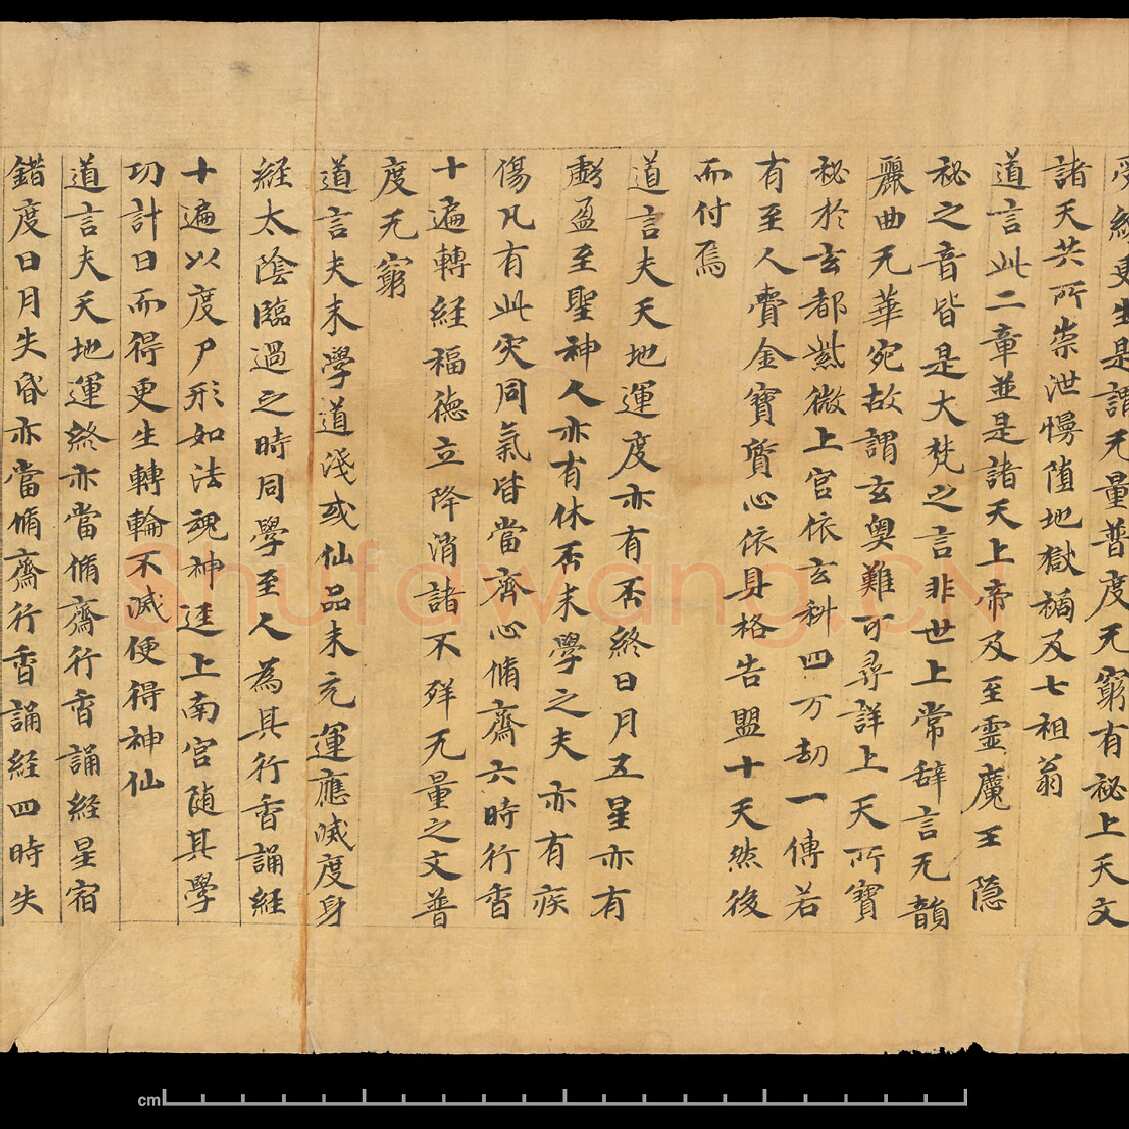 受經更生是謂无量普度无窮有秘上天文
諸天共所崇泄慢墮地獄禍及七祖翁
道言此二章並是諸天上帝及至靈魔王隱
秘之音皆是大梵之言非世上常辞言无韻
麗曲无華宛故謂玄奧難可尋詳上天所寶
秘於玄都紫微上宮依玄科四万劫一傳若
有至人賷金寶質心依身格告盟十天然後
而付焉
道言夫天地運度亦有否終日月五星亦有
虧盈至聖神人亦有休否末學之夫亦有疾
傷凡有此灾同氣皆當齊心脩齋六時行香
十遍轉經福德立降消諸不祥无量之文普
度无窮
道言夫末學道淺或仙品未充運應滅度身
経太陰臨過之時同學至人為其行香誦經
十遍以度尸形如法魂神逕上南宮随其學
功計日而得更生轉輪不滅便得神仙
道言夫天地運終亦當脩齋行香誦經星宿
錯度日月失昏亦當脩齋行香誦經四時失
Shufawang.CN
cm